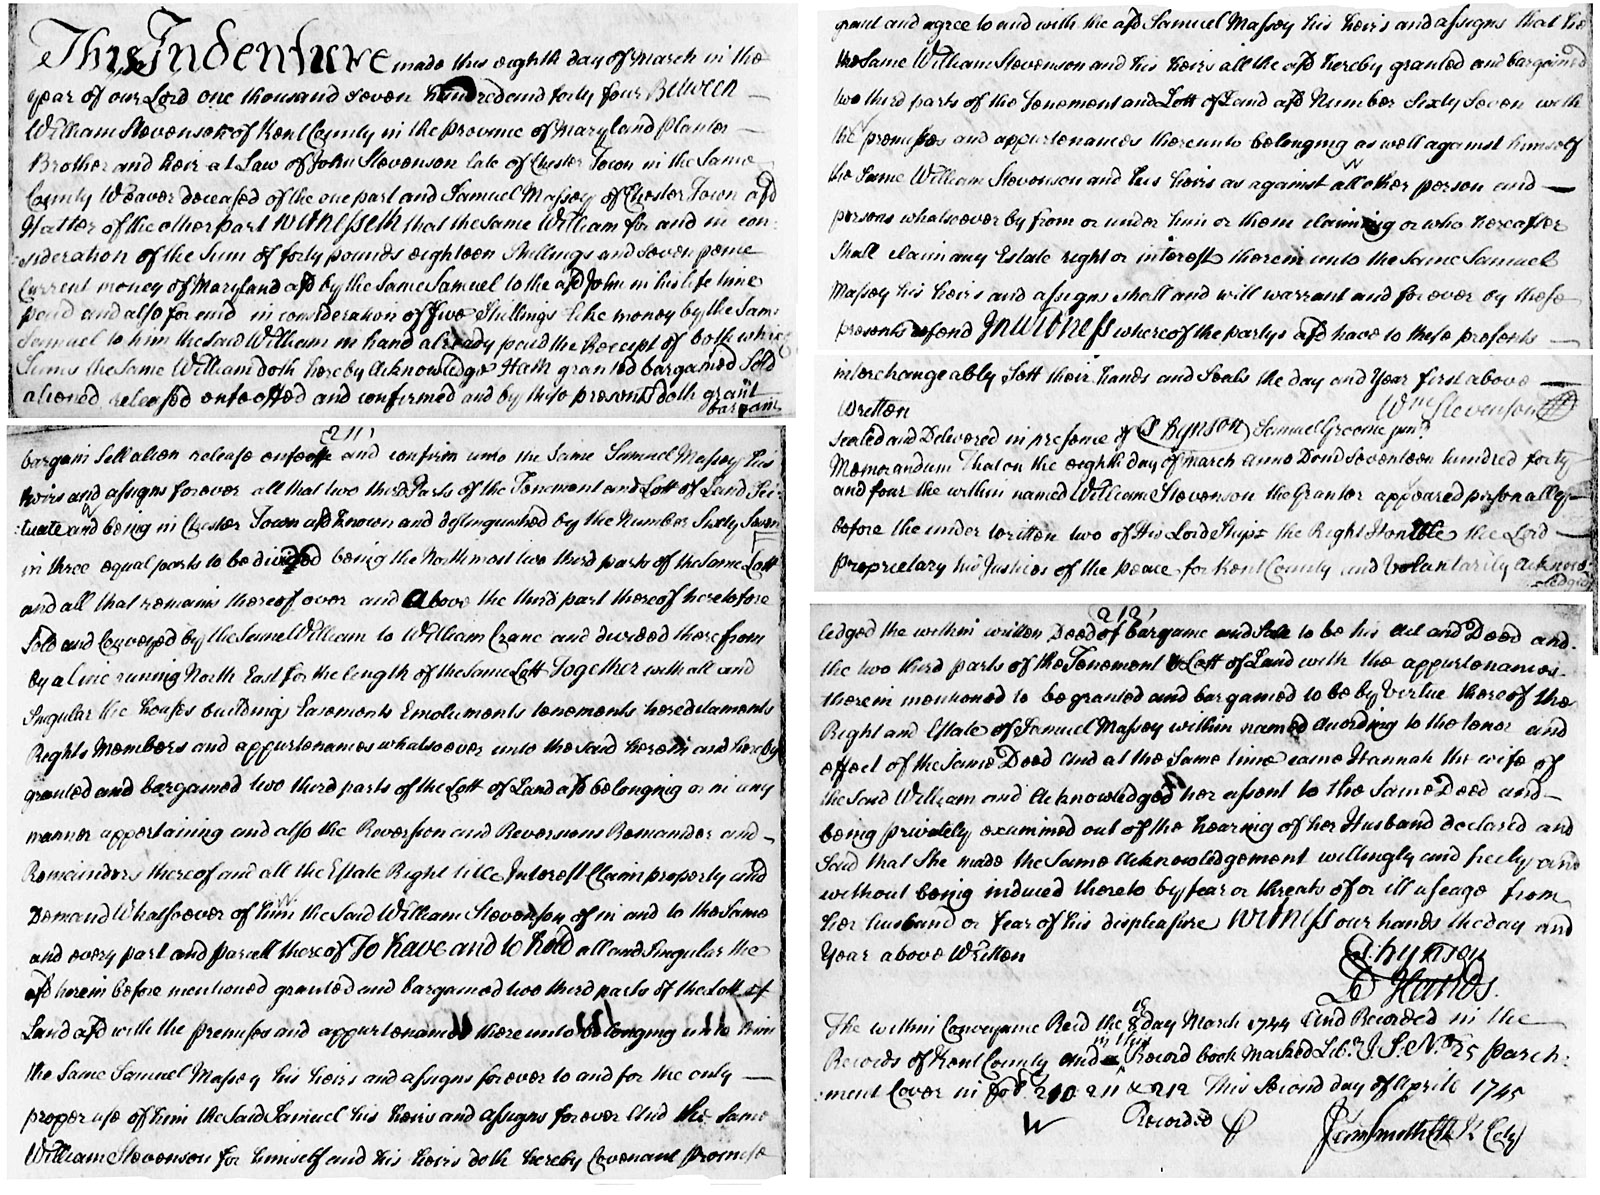 This Indenture made this eighth day of March in the
year of our Lord one thousand seven hundred and forty four Between
William Stevenson of Kent County in the province of Maryland planter
Brother and heir at Law of John Stevenson late of Chester Town in the Same
County Weaver deceased of the one part and Samuel Massey of Chester Town afd
Hatter of the other part Witnesseth that the same William for and in con:
:sideration of the Sum of forty pounds eighteen Shillings and Seven pence
Current money of Maryland afd by the Same Samuel to the afd John in his life time
paid and also for and in consideration of five Shillings like money by the Same
Samuel to him the said William in hand already paid the Receipt of both which
Sums the same William doth hereby Acknowledge Hath granted bargained Sold
aliened released enfeoffed and confirmed and by these presents doth grant
bargain
211
bargain sell alien release enfeoffe and confirm unto the same Samuel Massey his
heirs and assigns forever all that two third Parts of the Tenement and Lott of Land Sci:
:tuate and being in Chester Town afd known and distinguished by the Number Sixty Seven
in three equal parts to be divided being the Northmost two third parts of the same Lott
and all that remains thereof over and Above the third part thereof heretofore
Sold and Conveyed by the Same William to William Crane and divided therefrom
by a line runing North East for the length of the same Lott Together with all and
Singular the houses buildings Easements Emoluments tenements hereditaments
Rights Members and appurtenances whatsoever unto the said herein and hereby
granted and bargained two third parts of the Lott of Land afd belonging or in any
manner appertaining and also the Reversion and Reversions Remainder and
Remainders thereof and all the Estate Right title Interest Claim property and
Demand Whatsoever of him the said William Stevenson of in and to the Same
and every part and parcell thereof To have and to hold all and Singular the
afd herein before mentioned granted and bargained two third parts of the Lott of
Land afd with the premises and appurtenances there unto belonging unto him
the same Samuel Massey his heirs and assigns forever to and for the only
proper use of him the said Samuel his heirs and assigns forever And the same
William Stevenson for himself and his heirs doth hereby Covenant promise
grant and agree to and with the afd Samuel Massey his heirs and assigns that he
the Same William Stevenson and his heirs all the afd hereby granted and bargained
two third parts of the Tenement and Lott of Land afd Number Sixty Seven with
the premises and appurtenances thereunto belonging as well against himself
the Same William Stevenson and his heirs as against all other person and
persons whatsoever by from or under him or them claiming or who hereafter
Shall claim any Estate right or interest therein unto the Same Samuel
Massey his heirs and assigns shall and will warrant and forever by these
presents defend In witness whereof the partys afd have to these presents
interchangeably Sett their hands and Seals the day and Year first above
Written Wm Stevenson
sealed and Delivered in presence of Hynson Samuel Groome junr
Memorandum That on the eighth day of March Anno Domi Seventeen hundred forty
and four the within named William Stevenson the Grantor appeared personally
before the under written two of His Lord Ships the Right Honble the Lord
Proprietary his Justices of the peace for Kent County and Voluntarily acknow
:ledged
212
ledged the within written Deed of bargaine and Sale to be his Act and Deed and
the two third parts of the Tenement & Lott of Land with the appurtenances
therein mentioned to be granted and bargained to be by Virtue thereof the
Right and Estate of Samuel Massey within named according to the tenor and
effect of the Same Deed And at the Same time came Hannah the wife of
the Said William and Acknowledged her assent to the Same Deed and
being privately examined out of the hearing of her Husband declared and
Said that She made the Same Acknowledgement willingly and freely and
without being induced thereto by fear or threats of or ill useage from
her husband or fear of his displeasure Witness our hands the day and
Year above Written
Hynson
Hands
The within Conveyance Recd the 18 day March 1744 And Recorded in the
Records of Kent County and in the Record book Marked Libr J.S. No 25 parch:
:ment Cover in fols 210 211 & 212 This Second day of Aprile 1745
Recorded
Jas Smith Clk K Coty